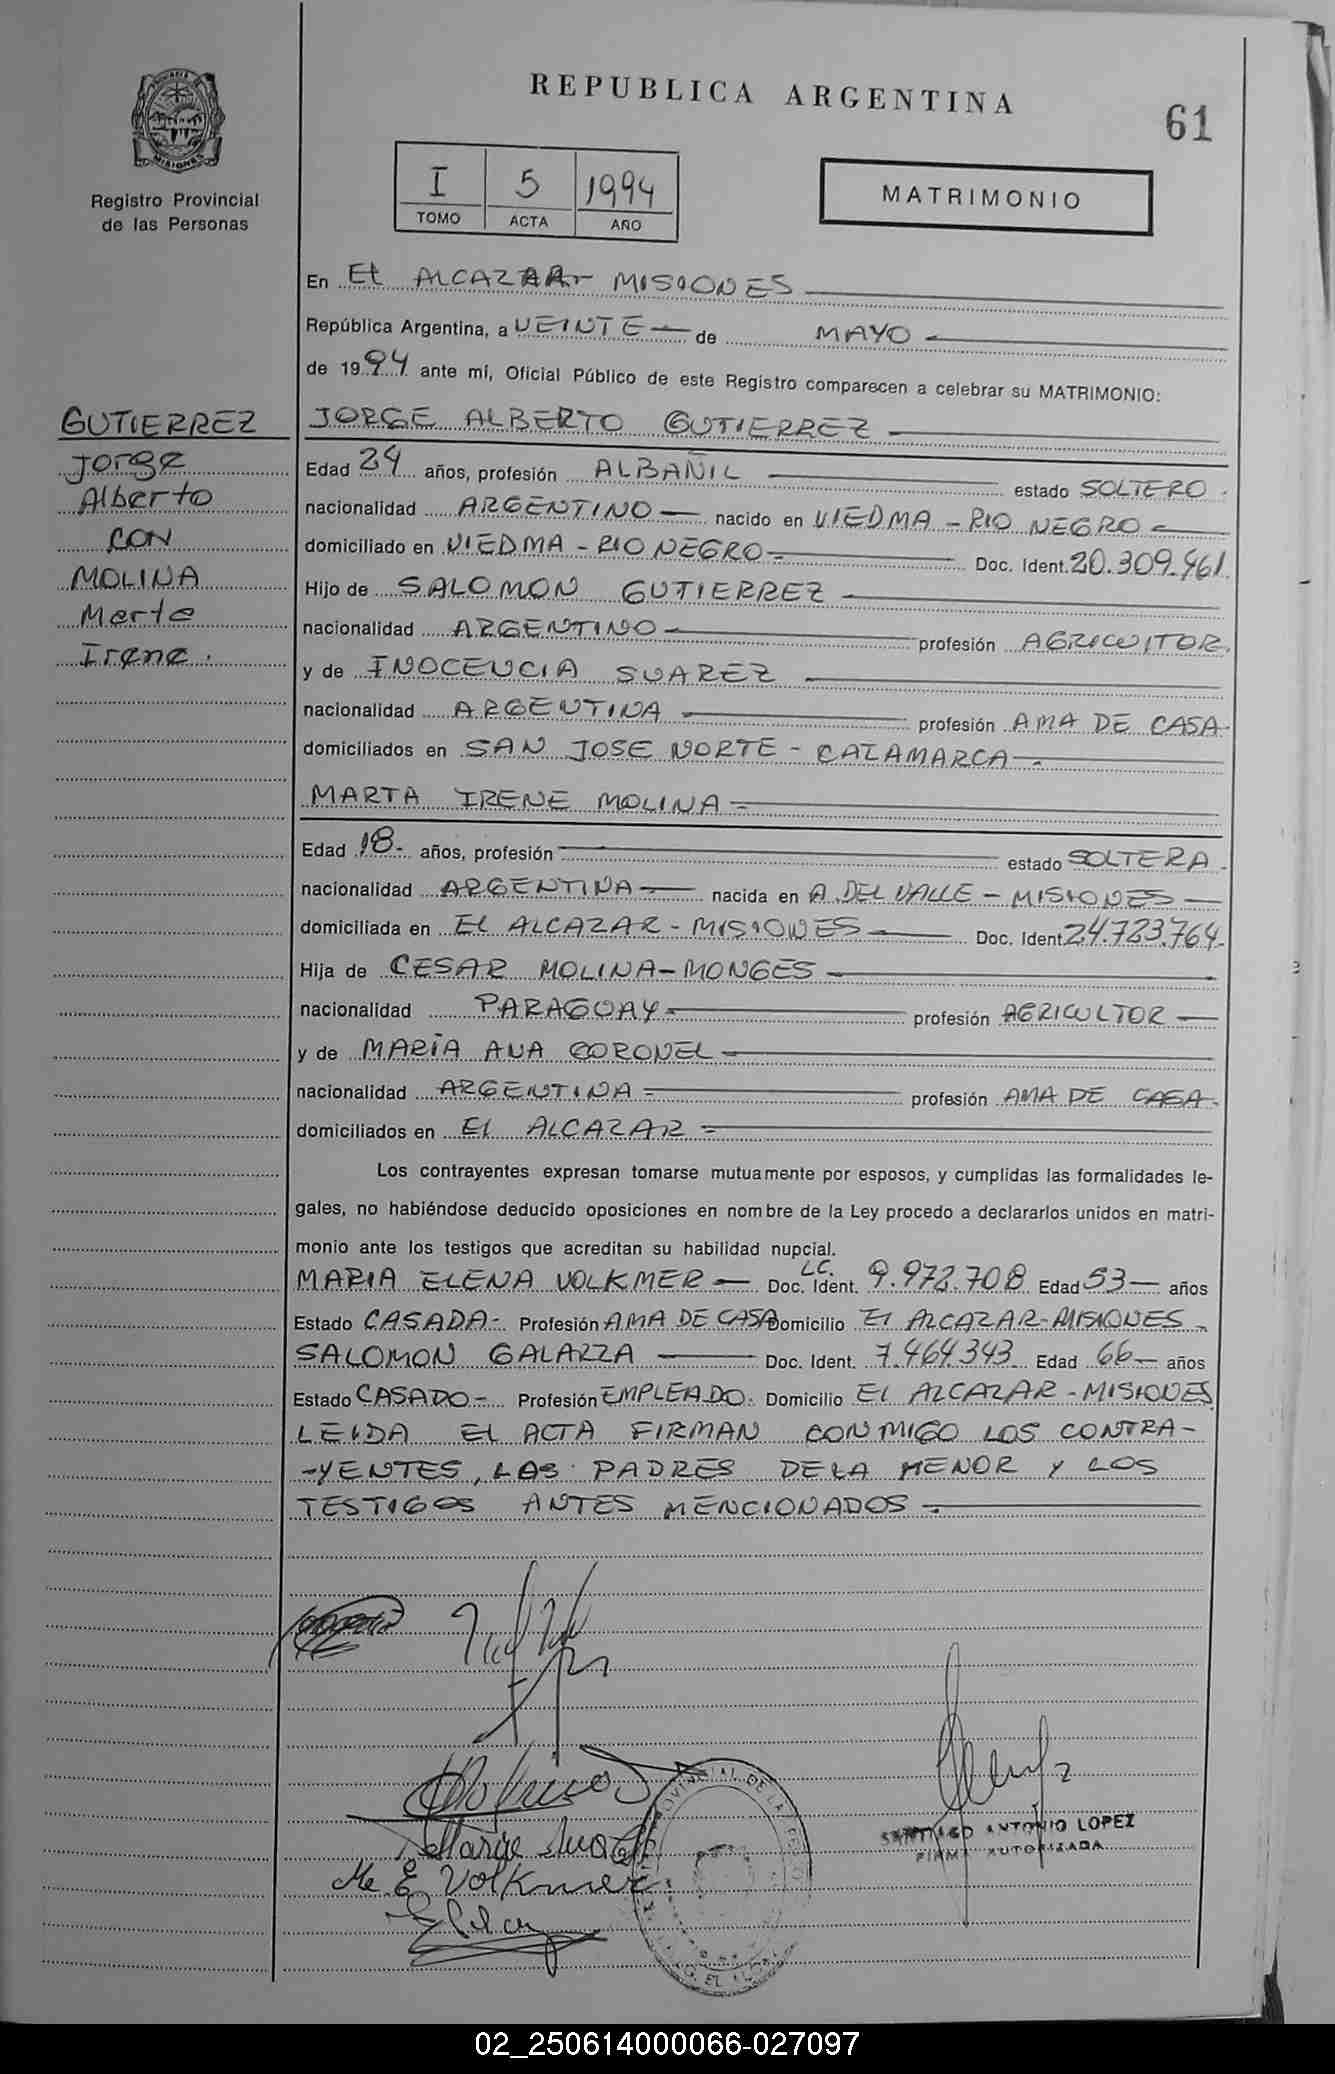 REPUBLICA ARGENTINA
61
PROVINCIA DE
MISIONES
Registro Provincial
de las Personas
I 5 1994
TOMO ACTA AÑO
MATRIMONIO
En El ALCAZAR- MISIONES
República Argentina, a VEINTE de MAYO
de 1994 ante mí, Oficial Público de este Registro comparecen a celebrar su MATRIMONIO:
GUTIERREZ
Jorge
Alberto
CON
MOLINA
Marta
Irene.
JORGE ALBERTO GUTIERREZ
Edad 24 años, profesión ALBAÑIL estado SOLTERO.
nacionalidad ARGENTINO nacido en VIEDMA - RIO NEGRO
domiciliado en VIEDMA - RIO NEGRO Doc. Ident. 20.309.961
Hijo de SALOMON GUTIERREZ
nacionalidad ARGENTINO profesión AGRICULTOR.
y de INOCENCIA SUAREZ
nacionalidad ARGENTINA profesión AMA DE CASA
domiciliados en SAN JOSE NORTE - CATAMARCA
MARTA IRENE MOLINA
Edad 18- años, profesión estado SOLTERA.
nacionalidad ARGENTINA nacida en A. DEL VALLE - MISIONES
domiciliada en EL ALCAZAR - MISIONES Doc. Ident 24.723.764-
Hija de CESAR MOLINA-MONGES
nacionalidad PARAGUAY profesión AGRICULTOR
y de MARÍA ANA CORONEL
nacionalidad ARGENTINA profesión AMA DE CASA.
domiciliados en El ALCAZAR
Los contrayentes expresan tomarse mutuamente por esposos, y cumplidas las formalidades le-
gales, no habiéndose deducido oposiciones en nombre de la Ley procedo a declararlos unidos en matri-
monio ante los testigos que acreditan su habilidad nupcial.
MARIA ELENA VOLKMER Doc. Ident. LC. 9.972.708 Edad 53 años
Estado CASADA- Profesión AMA DE CASA Domicilio El ALCAZAR-MISIONES
SALOMON GALARZA Doc. Ident. 7.464.343 Edad 66 años
Estado CASADO- Profesión EMPLEADO. Domicilio El ALCAZAR - MISIONES
LEIDA EL ACTA FIRMAN CONMIGO LOS CONTRA-
-YENTES, LOS PADRES DE LA MENOR Y LOS
TESTIGOS ANTES MENCIONADOS
Ma E Volkmer.
SANTIAGO ANTONIO LOPEZ
FIRMA AUTORIZADA
02_250614000066-027097